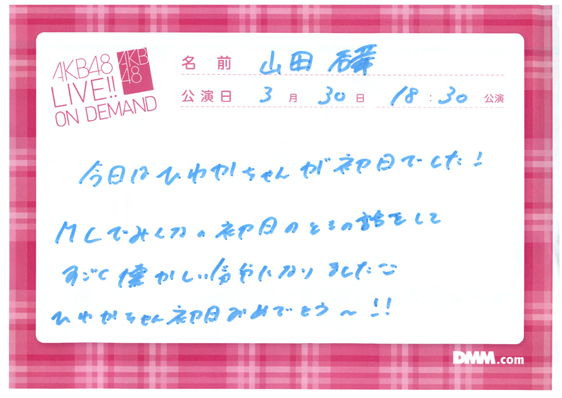 AKB48
LIVE!!
ON DEMAND
AKB
48
名前 山田杏華
公演日 3月30日 18:30公演
今日はひわたちゃんが初日でした!
MCでみんなの初日のときの話をして
すごく懐かしい気分になりました
ひわたちゃん初日おめでとう〜!!
DMM.com